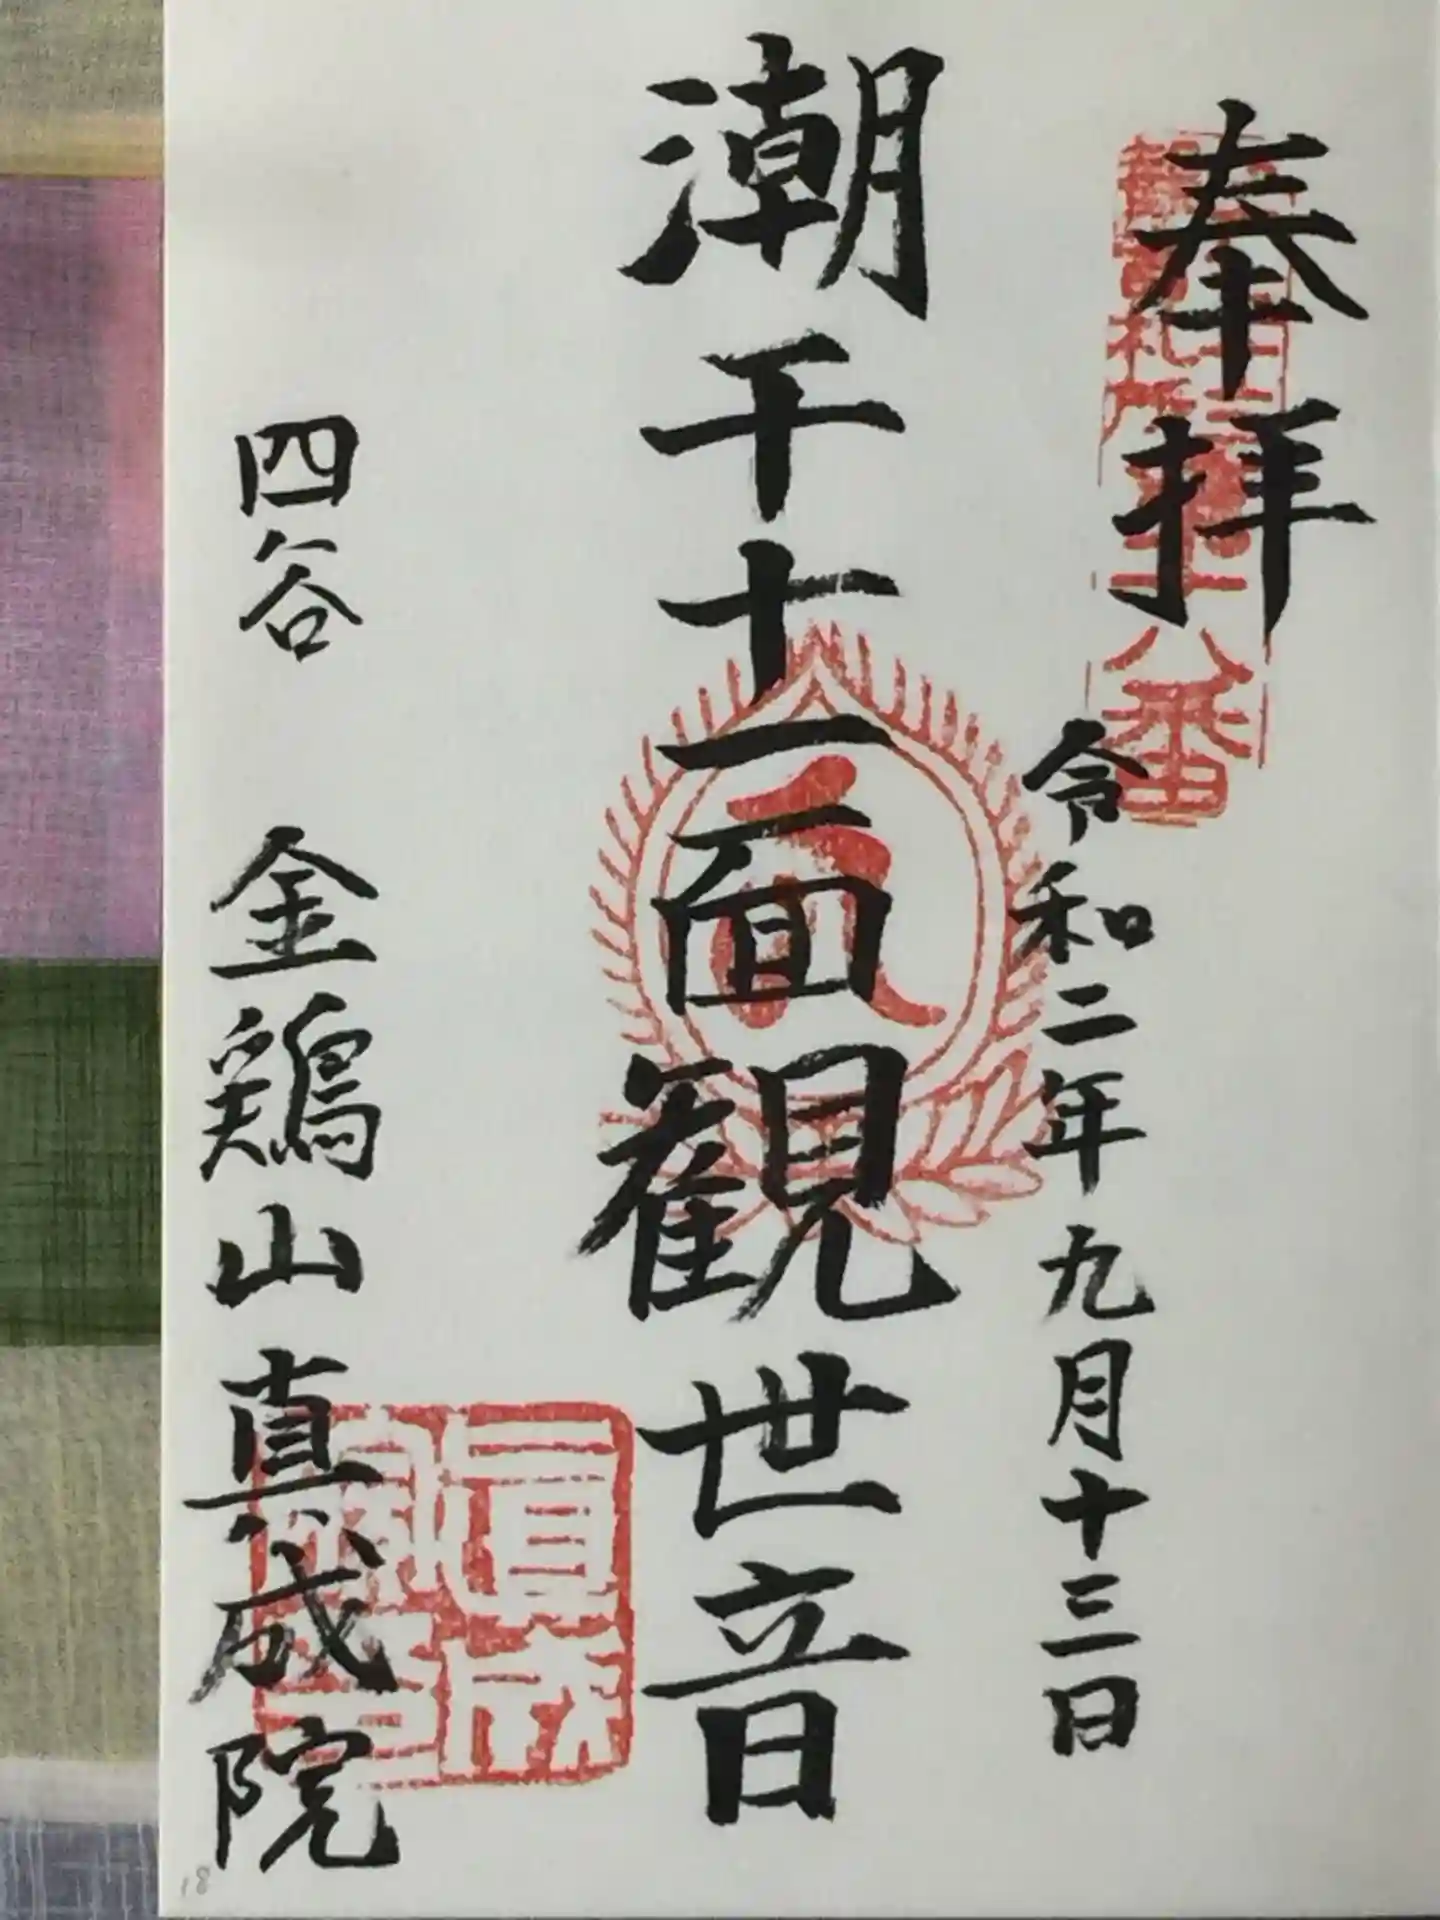 奉拝
令和二年九月十三日
潮干十一面観世音
四谷 金鶏山真成院
18